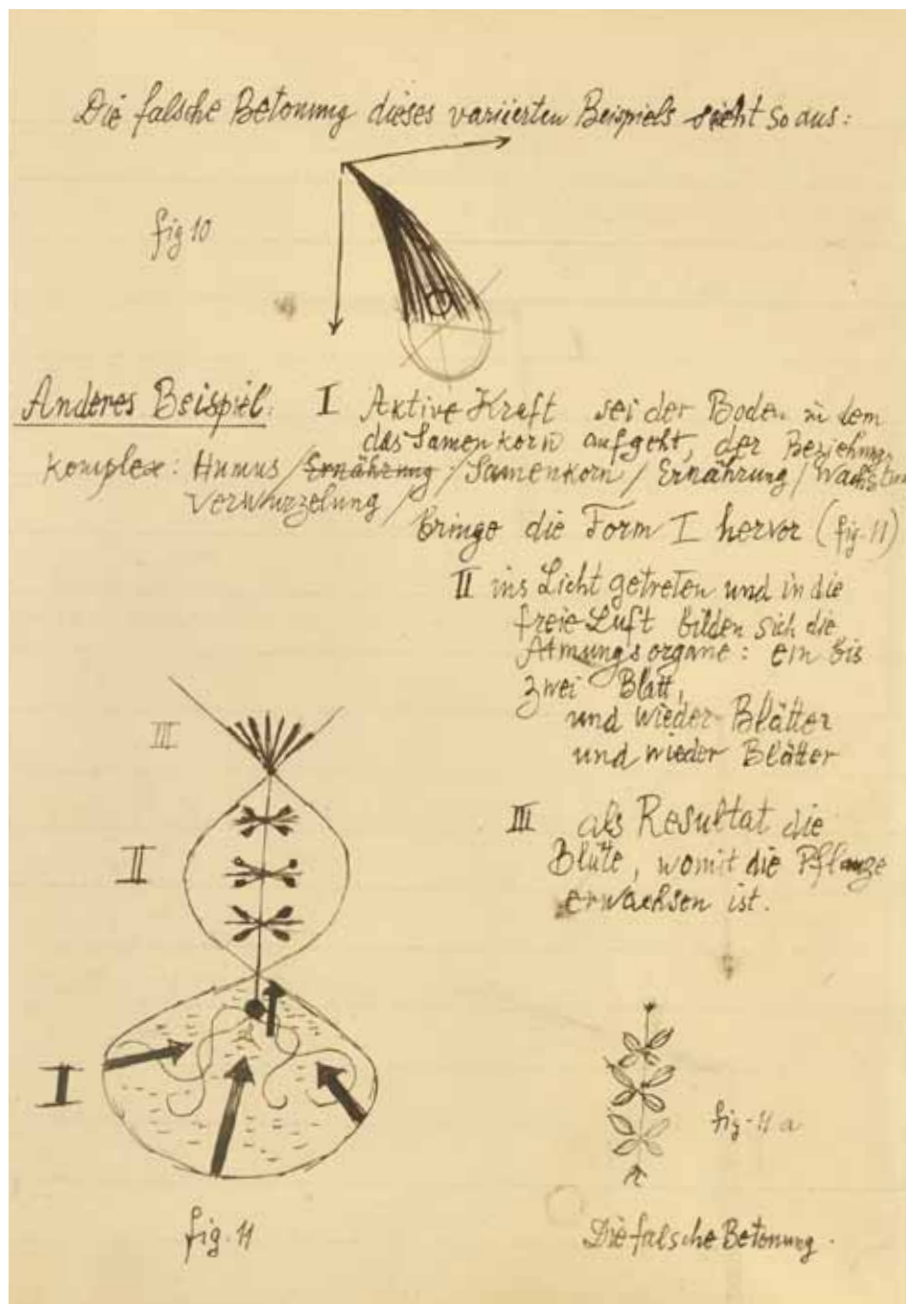 Die falsche Betonung dieses variierten Beispiels sieht so aus:
fig 10
Anderes Beispiel: I Aktive Kraft sei der Boden in dem
das Samenkorn aufgeht, der Beziehungs
Komplex: Humus / Ernährung / Samenkorn / Ernährung / Wachstum
Verwurzelung /
Bringe die Form I hervor (fig. 11)
II ins Licht getreten und in die
freie Luft bilden sich die
Atmungsorgane: ein bis
zwei Blatt,
und wieder Blätter
und wieder Blätter
III als Resultat die
Blüte, womit die Pflanze
erwachsen ist.
III
II
I
fig. 11
fig-11 a
Die falsche Betonung.